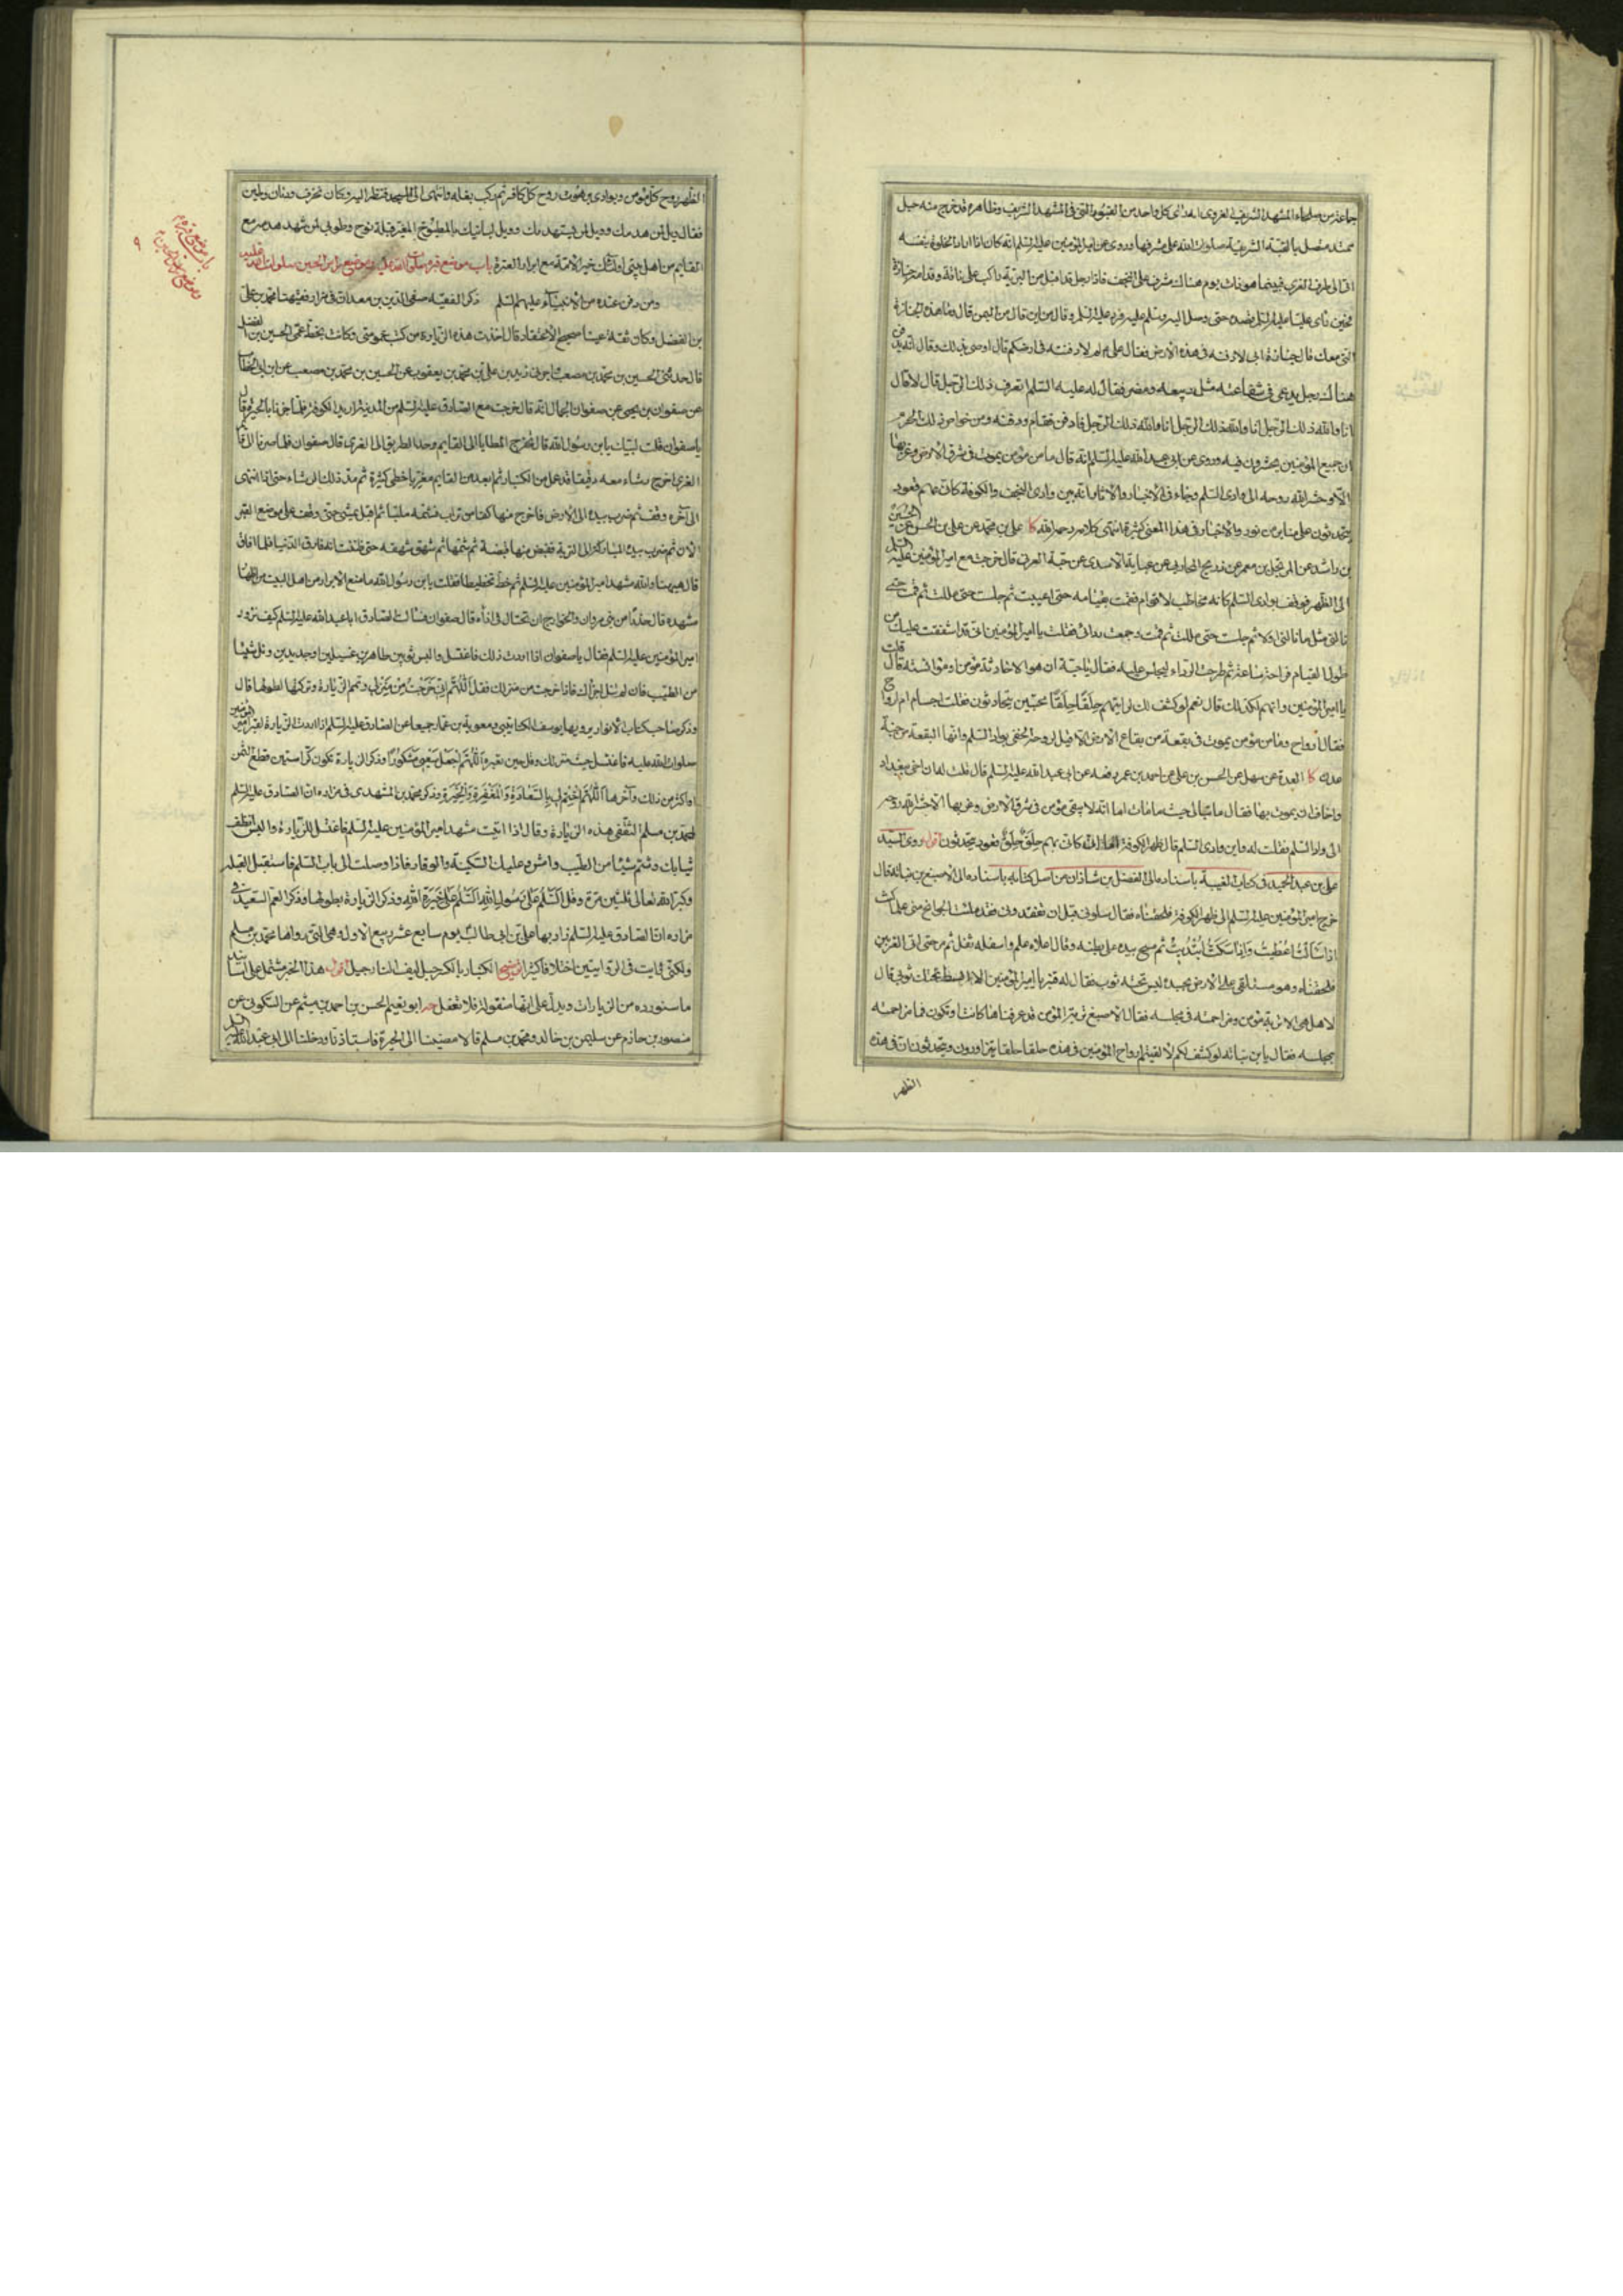 جماعة من صلحاء المشهد الشريف الغروي ان كل واحد من القبور التي في المشهد الشريف وظاهره قد خرج منه حبل
ممتد متصل بالقبة الشريفة صلوات الله على مشرفها وروى عن امير المؤمنين عليه السلم انه كان اذا اراد الخلوة بنفسه
اتى الى طرف الغري فبينما هو ذات يوم هناك مشرف على النجف فاذا رجل قد اقبل من البرية راكب على ناقة وقدامه جنازة
فحين راى عليا عليه السلم قصده حتى وصل اليه وسلم عليه فرد عليه السلم وقال من اين قال من اليمن قال وما هذه الجنازة
التي معك قال جنازة ابي لادفنه في هذه الارض فقال علي لم لا دفنته في ارضكم قال اوصى بذلك وقال انه يدفن
هناك رجل يدعى في شفاعته مثل ربيعة ومضر فقال له عليه السلم اتعرف ذلك الرجل قال لا قال
انا والله ذلك الرجل انا والله ذلك الرجل انا والله ذلك الرجل فادفن فقام ودفنه ومن خواص ذلك الحرم
ان جميع المؤمنين يحشرون فيه وروى عن ابي عبد الله عليه السلم انه قال ما من مؤمن يموت في شرق الارض وغربها
الا وحشر الله روحه الى وادي السلم وجاء في الاخبار والاثار انه بين وادي النجف والكوفة كاني بهم قعود
يتحدثون على منابر من نور والاخبار في هذا المعنى كثيرة انتهى كلامه رحمه الله كا علي بن محمد عن علي بن الحسن عن الحسين
بن راشد عن المرتجل بن معمر عن ذريح المحاربي عن عباية الاسدي عن حبة العرني قال خرجت مع امير المؤمنين عليه السلم
الى الظهر فوقف بوادي السلم كانه مخاطب لاقوام فقمت بقيامه حتى اعييت ثم جلست حتى مللت ثم قمت حتى
نالني مثل ما نالني اولا ثم جلست حتى مللت ثم قمت وجمعت ردائي فقلت يا امير المؤمنين اني قد اشفقت عليك من
طول القيام فراحة ساعة ثم طرحت الرداء ليجلس عليه فقال يا حبة ان هو الا محادثة مؤمن او مؤانسته قال قلت
يا امير المؤمنين وانهم لكذلك قال نعم لو كشف لك لرايتهم حلقا حلقا محتبين يتحادثون فقلت اجسام ام ارواح
فقال ارواح وما من مؤمن يموت في بقعة من بقاع الارض الا قيل لروحه الحقي بوادي السلم وانها لبقعة من جنة
عدن كا العدة عن سهل عن الحسن بن علي عن احمد بن عمر رفعه عن ابي عبد الله عليه السلم قال قلت له ان اخي ببغداد
واخاف ان يموت بها فقال ما تبالي حيث ما مات اما انه لا يبقى مؤمن في شرق الارض وغربها الا حشر الله روحه
الى وادي السلم فقلت له واين وادي السلم قال ظهر الكوفة اما اني كاني بهم حلق حلق قعود يتحدثون اقول روى السيد
علي بن عبد الحميد في كتاب الغيبة باسناده الى الفضل بن شاذان من اصل كتابه باسناده الى الاصبغ بن نباته قال
خرج امير المؤمنين عليه السلم الى ظهر الكوفة فلحقناه فقال سلوني قبل ان تفقدوني فقد ملئت الجوانح مني علما كنت
اذا سالت اعطيت واذا سكت ابتديت ثم مسح بيده على بطنه وقال اعلاه علم واسفله ثفل ثم مر حتى اتى الغريين
فلحقناه وهو مستلقي على الارض بجسده ليس تحته ثوب فقال له قنبر يا امير المؤمنين الا ابسط تحتك ثوبي قال
لا هل هي الا تربة مؤمن ومزاحمته في مجلسه فقال الاصبغ تربة المؤمن قد عرفناها كانت او تكون فما مزاحمته
بمجلسه فقال يا بن نباته لو كشف لكم لالفيتم ارواح المؤمنين في هذه حلقا حلقا يتزاورون ويتحدثون ان في هذه
الظهر
الظهر روح كل مؤمن وبوادي برهوت روح كل كافر ثم ركب بغلته وانتهى الى المسجد فنظر اليه وكان بخزف ودنان وطين
فقال ويل لمن هدمك وويل لمن يستهدمك وويل لبانيك بالمطبوخ المغير قبلة نوح وطوبى لمن شهد هدمه مع
القايم من اهل بيتي اولئك خير الامة مع ابرار العترة باب موضع قبره صلوات الله عليه وموضع راس الحسين صلوات الله عليه
ومن دفن عنده من الانبياء عليهم السلم ذكر الفقيه صفي الدين بن معد ان في مزار فيهتا محمد بن علي
بن الفضل وكان ثقة عينا صحيح الاعتقاد قال اخذت هذه الزيارة من كتب عمومتي وكانت بخط عمي الحسين بن الفضل
قال حدثني الحسين بن محمد بن مصعب بن زيد بن علي بن محمد بن يعقوب عن الحسين بن محمد بن مصعب عن ابن ابي الخطاب
عن صفوان بن يحيى عن صفوان الجمال انه قال خرجت مع الصادق عليه السلم من المدينة اريد الكوفة فلما جزنا بالحيرة قال
يا صفوان قلت لبيك يا بن رسول الله قال تخرج المطايا الى القايم وحد الطريق الى الغري قال صفوان فلما صرنا الى قايم
الغري اخرج رشاء معه دقيقا قد عمل من الكنبار ثم ابعد من القايم مغربا خطى كثيرة ثم مد ذلك الرشاء حتى اذا انتهى
الى اخره وقف ثم ضرب بيده الى الارض فاخرج منها كفا من تراب فشمه مليا ثم اقبل يمشي حتى وقف على موضع القبر
الآن ثم ضرب بيده المباركة الى التربة فقبض منها قبضة ثم شمها ثم شهق شهقة حتى ظننت انه فارق الدنيا فلما افاق
قال هيهنا والله مشهد امير المؤمنين عليه السلم ثم خط تخطيطا فقلت يا بن رسول الله ما منع الابرار من اهل البيت من اظهار
مشهده قال حذرا من بني مروان والخوارج ان تحتال في اذاه قال صفوان فسالت الصادق ابا عبد الله عليه السلم كيف نزور
امير المؤمنين عليه السلم فقال يا صفوان اذا اردت ذلك فاغتسل والبس ثوبين طاهرين غسيلين او جديدين ونل شيئا
من الطيب فان لم تنل اجزاك فاذا خرجت من منزلك فقل اللهم اني خرجت من منزلي وتمم الزيارة وتركتها لطولها قال
وذكر صاحب كتاب الانوار يرويها يوسف الكناسي ومعوية بن عمار جميعا عن الصادق عليه السلم اذا اردت الزيارة لقبر امير المؤمنين
صلوات الله عليه فاغتسل حيث تيسر لك وقل حين تعزم اللهم اجعل سعيي مشكورا وذكر الزيارة تكون كراستين قطع الثمن
او اكثر من ذلك وآخرها اللهم اختم لي بالسعادة والمغفرة والخيرة وذكر محمد بن المشهدي في مزاره ان الصادق عليه السلم علم
محمد بن مسلم الثقفي هذه الزيارة وقال اذا اتيت مشهد امير المؤمنين عليه السلم فاغتسل للزيارة والبس انظف
ثيابك وشم شيئا من الطيب وامش وعليك السكينة والوقار فاذا وصلت الى باب السلم فاستقبل القبلة
وكبر الله تعالى ثلثين مرة وقل السلم على رسول الله السلم على خيرة الله وذكر الزيارة بطولها وذكر العم السعيد في
مزاره ان الصادق عليه السلم زار بها علي بن ابي طالب يوم سابع عشر ربيع الاول وهي التي رواها محمد بن مسلم
ولكني رايت في الروايتين اختلافا كثيرا توضيح الكنبار بالكسر حبل ليف النارجيل اقول هذا الخبر مشتمل على اسناد
ما سنورده من الزيارات ويدل على انها منقولة فلا تغفل حه ابو نعيم الحسن بن احمد بن ميثم عن السكوني عن
منصور بن حازم عن سليمن بن خالد ومحمد بن مسلم قالا مضينا الى الحيرة فاستاذنا ودخلنا الى ابي عبد الله عليه السلم